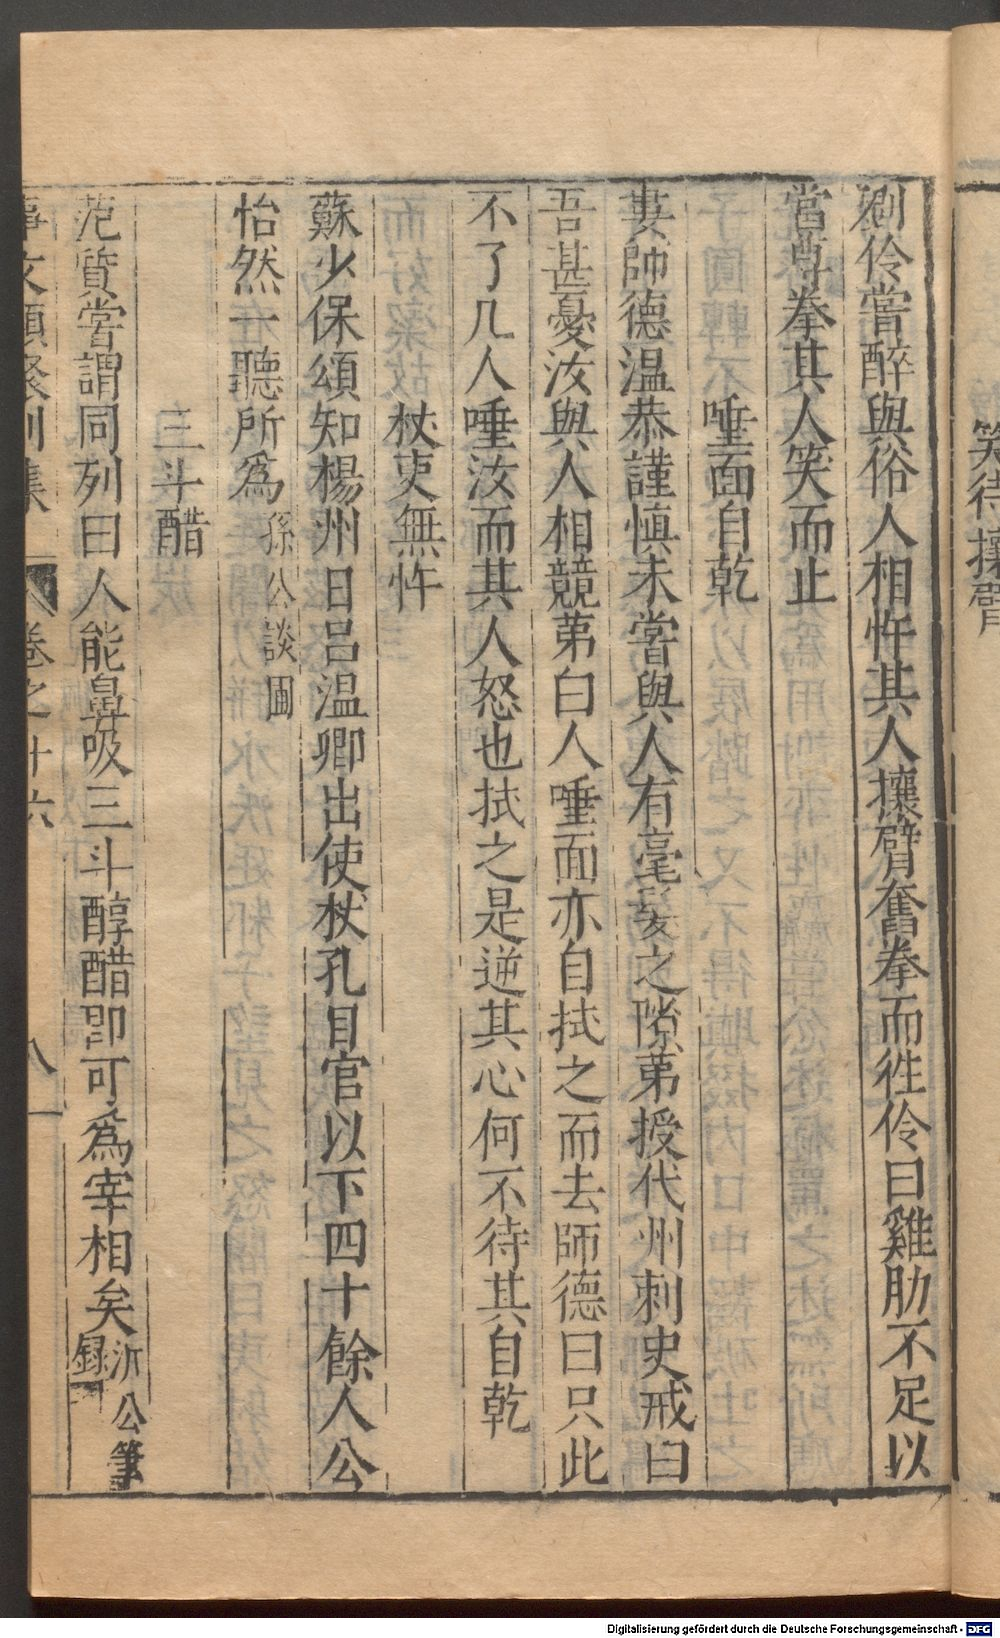 笑待攘臂
劉伶嘗醉與俗人相忤其人攘臂奮拳而徃伶曰雞肋不足以
當尊拳其人笑而止
唾面自乾
婁師德温恭謹慎未嘗與人有毫髮之隙第授代州刺史戒曰
吾甚憂汝與人相競第曰人唾面亦自拭之而去師德曰只此
不了凡人唾汝而其人怒也拭之是逆其心何不待其自乾
杖吏無忤
蘇少保頌知楊州日呂温卿出使杖孔目官以下四十餘人公
怡然一聽所爲孫公談圃
三斗醋
范質嘗謂同列曰人能鼻吸三斗醇醋即可爲宰相矣沂公筆
録
事文類聚別集 卷之十六 八
Digitalisierung gefördert durch die Deutsche Forschungsgemeinschaft - DFG